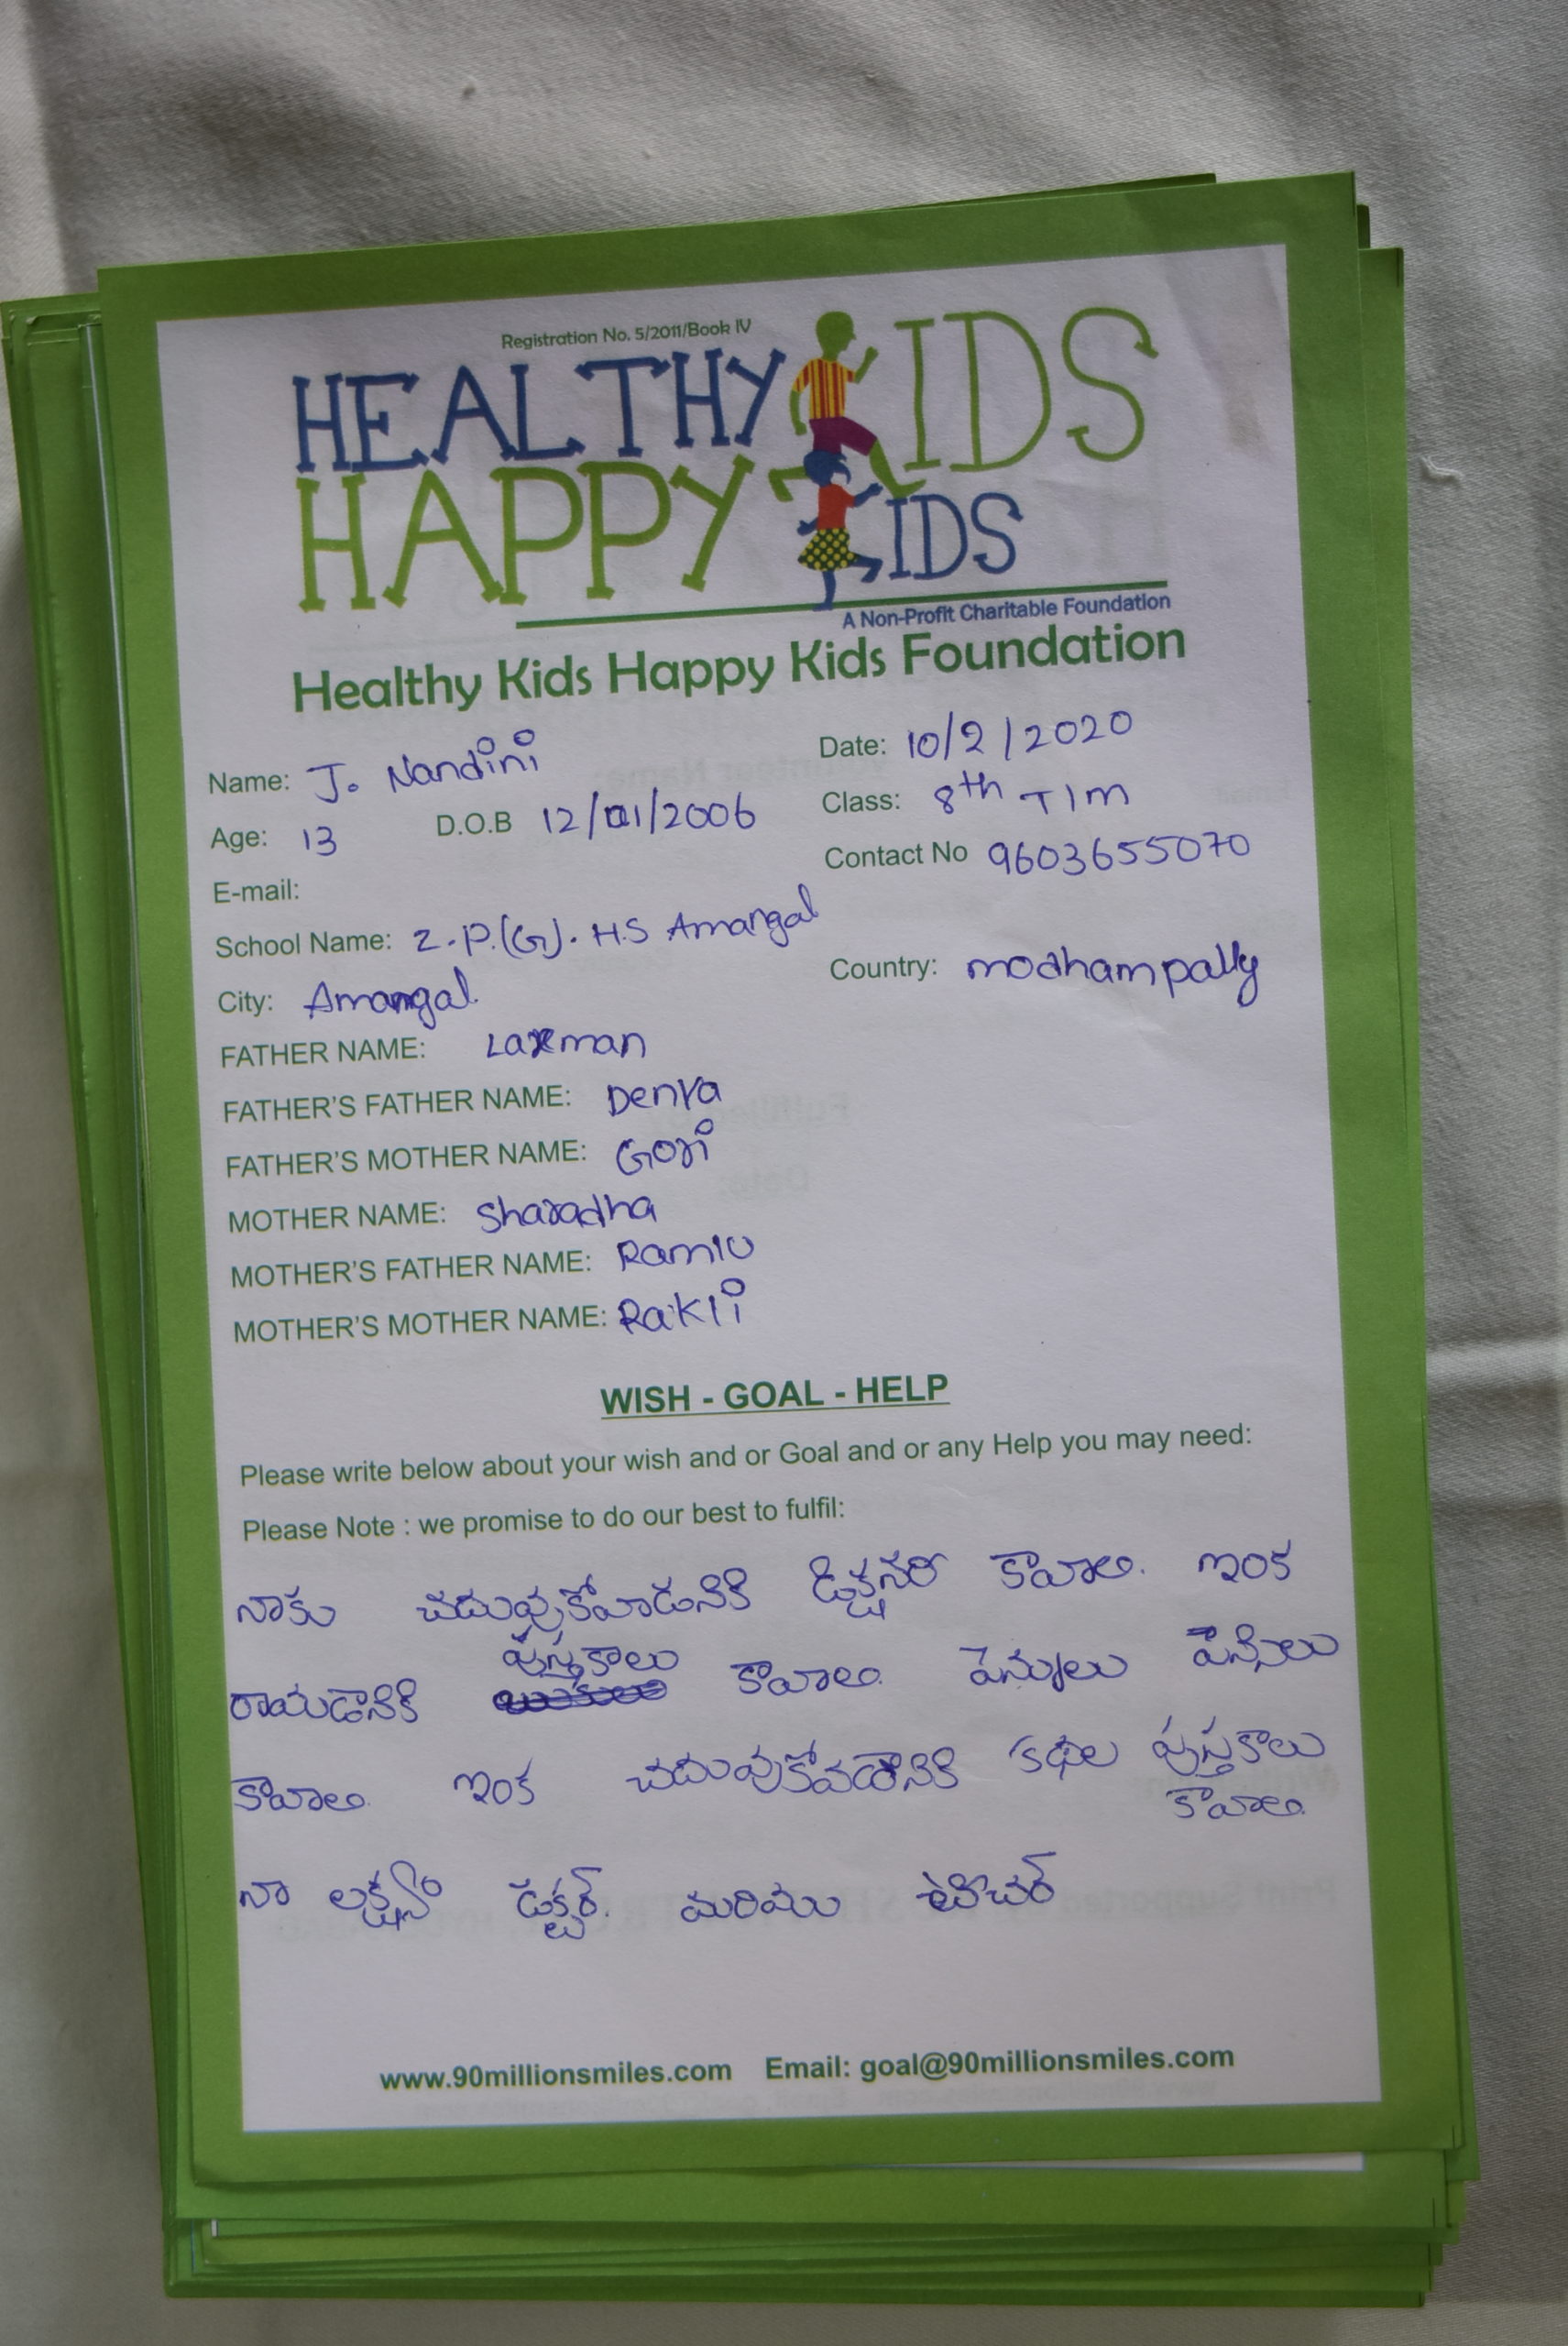 Registration No. 5/2011/Book IV
HEALTHY KIDS
HAPPY KIDS
A Non-Profit Charitable Foundation
Healthy Kids Happy Kids Foundation
Name: J. Nandini Date: 10/2/2020
Age: 13 D.O.B 12/01/2006 Class: 8th T/m
E-mail: Contact No 9603655070
School Name: Z.P.(G).H.S Amangal
City: Amangal Country: modhampally
FATHER NAME: Laxman
FATHER'S FATHER NAME: Denya
FATHER'S MOTHER NAME: Gori
MOTHER NAME: Sharadha
MOTHER'S FATHER NAME: Ramlu
MOTHER'S MOTHER NAME: Rakli
WISH - GOAL - HELP
Please write below about your wish and or Goal and or any Help you may need:
Please Note : we promise to do our best to fulfil:
నాకు చదువుకోవాడనికి డిక్షనరీ కావాలి. ఇంక
రాయడానికి పుస్తకాలు కావాలి. పెన్నులు పెన్సిలు
కావాలి. ఇంక చదువుకోవడానికి కథల పుస్తకాలు
కావాలి.
నా లక్ష్యం డక్టర్. మరియు టీచర్
www.90millionsmiles.com Email: goal@90millionsmiles.com